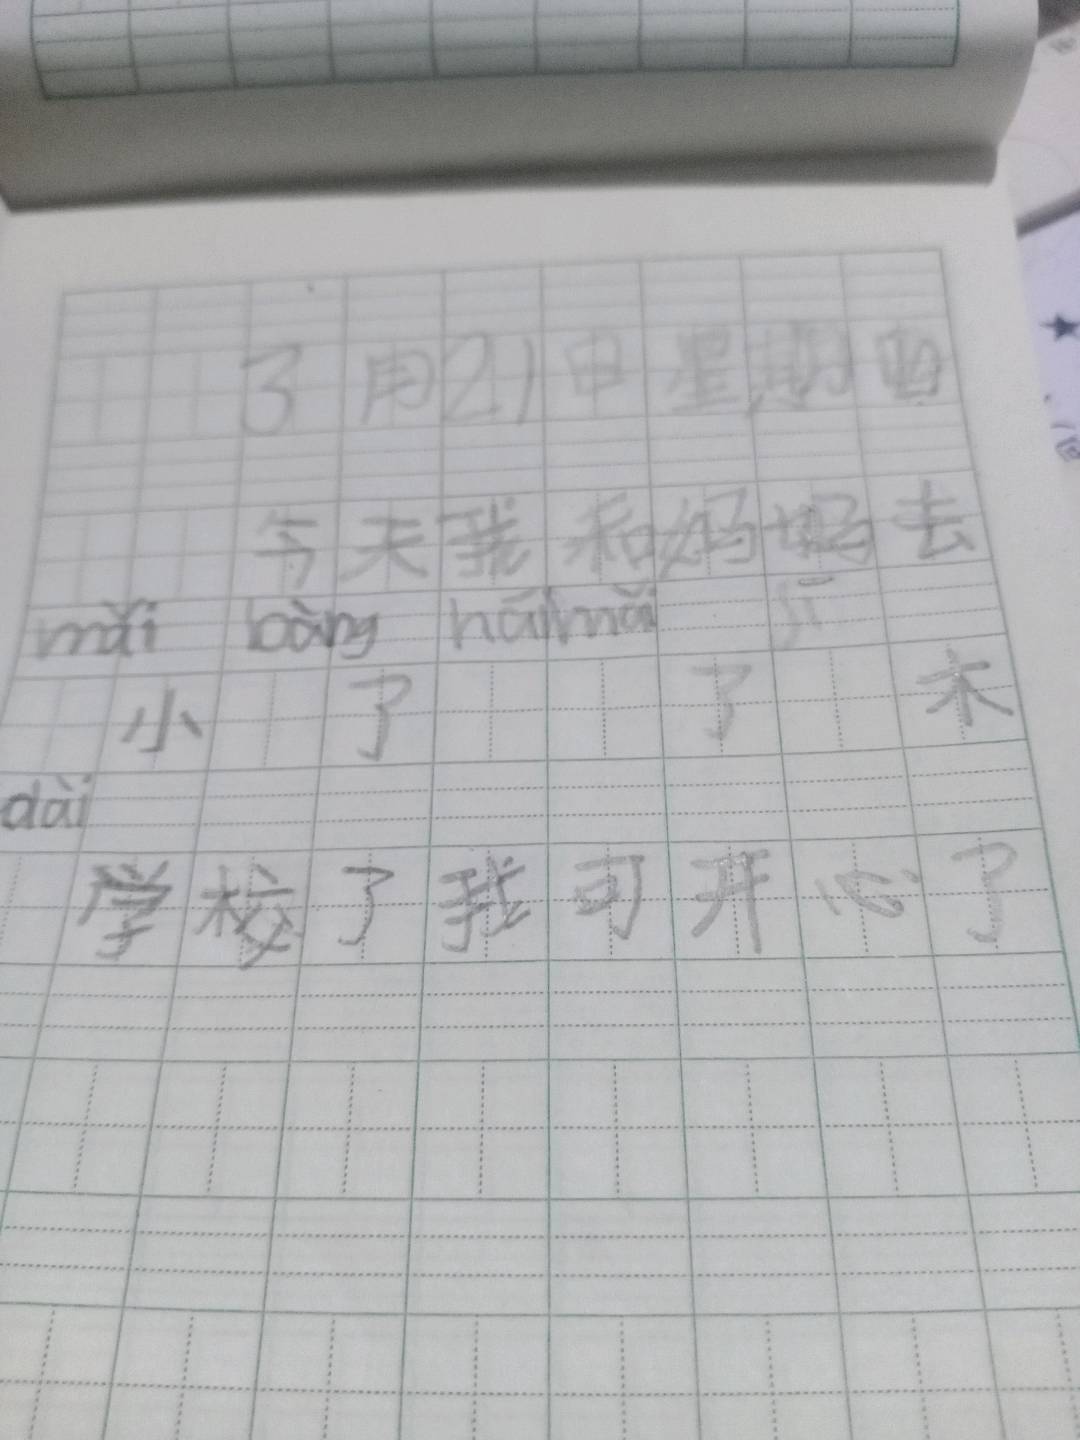 3月21日星期四
今天我和妈妈去
mǎi bàng hái mǎi jī
小了了木
dài
学校了我可开心了